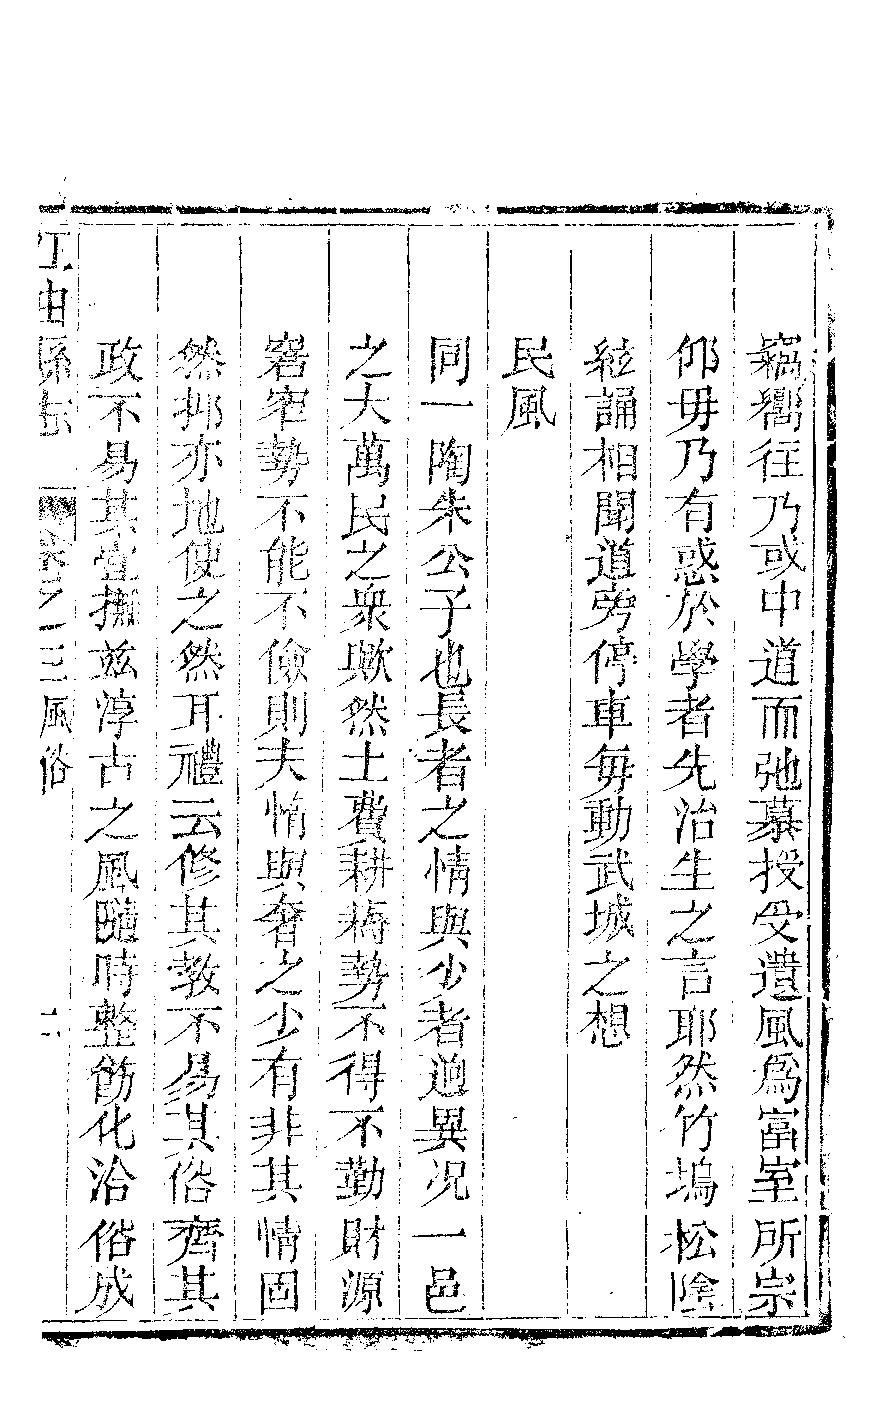 竊嚮往乃或中道而弛慕授受遺風爲富室所宗
仰毋乃有惑於學者先治生之言耶然竹塢松陰
絃誦相聞道旁停車每動武城之想
民風
同一陶朱公子也長者之情與少者逈異况一邑
之大萬民之衆歟然土費耕耨勢不得不勤財源
窘窄勢不能不儉則夫惰與奢之少有非其情固
然抑亦地使之然耳禮云修其教不易其俗齊其
政不易其宜撫兹淳古之風隨時整飭化洽俗成
江油縣志 卷之三風俗 二